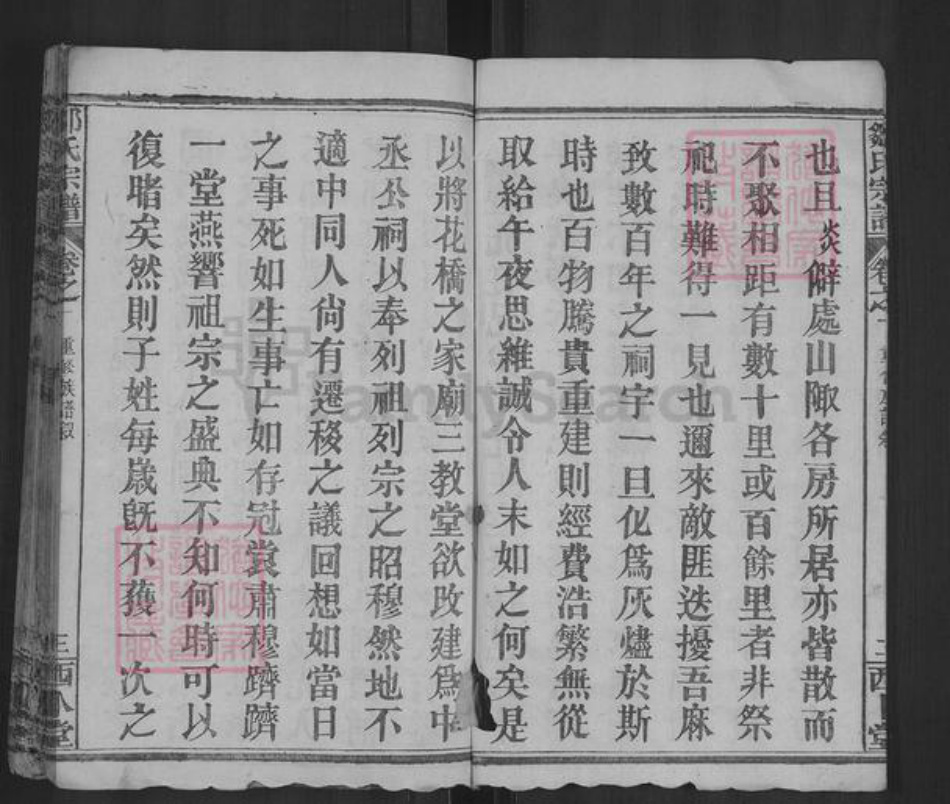 也且淡僻處山陬各房所居亦皆散而
不聚相距有數十里或百餘里者非祭
祀時難得一見也邇來敵匪迭擾吾麻
致數百年之祠宇一旦化為灰燼於斯
時也百物騰貴重建則經費浩繁無從
取給午夜思維誠令人末如之何矣是
以將花橋之家廟三教堂欲改建為中
丞公祠以奉列祖列宗之昭穆然地不
適中同人尙有遷移之議回想如當日
之事死如生事亡如存冠裳肅穆躋躋
一堂燕響祖宗之盛典不知何時可以
復睹矣然則子姓每嵗旣不獲一次之
氏宗譜
卷之一
重修族譜叙
三
西
堂
FamilySearch